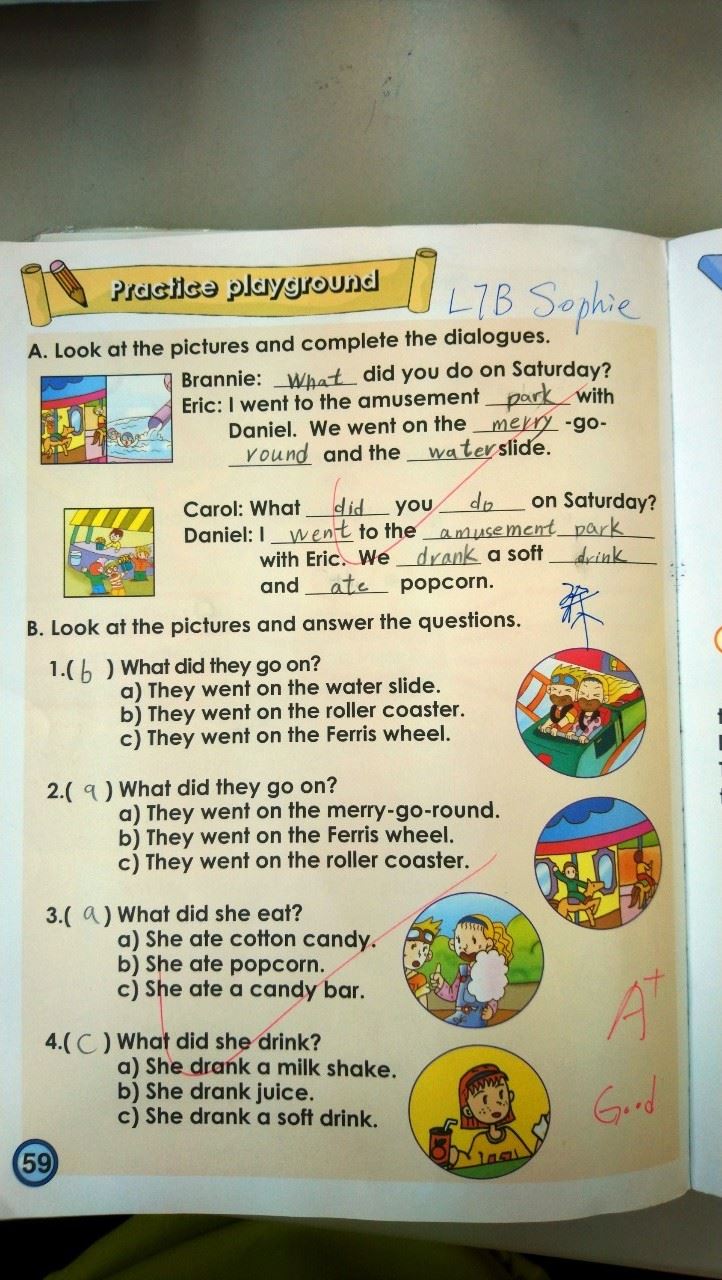 Practice playground
L7B Sophie
A. Look at the pictures and complete the dialogues.
Brannie: What did you do on Saturday?
Eric: I went to the amusement park with
Daniel. We went on the merry -go-
round and the water slide.
Carol: What did you do on Saturday?
Daniel: I went to the amusement park
with Eric. We drank a soft drink
and ate popcorn.
B. Look at the pictures and answer the questions.
1.( b ) What did they go on?
a) They went on the water slide.
b) They went on the roller coaster.
c) They went on the Ferris wheel.
2.( a ) What did they go on?
a) They went on the merry-go-round.
b) They went on the Ferris wheel.
c) They went on the roller coaster.
3.( a ) What did she eat?
a) She ate cotton candy.
b) She ate popcorn.
c) She ate a candy bar.
4.( C ) What did she drink?
a) She drank a milk shake.
b) She drank juice.
c) She drank a soft drink.
A+
Good
59